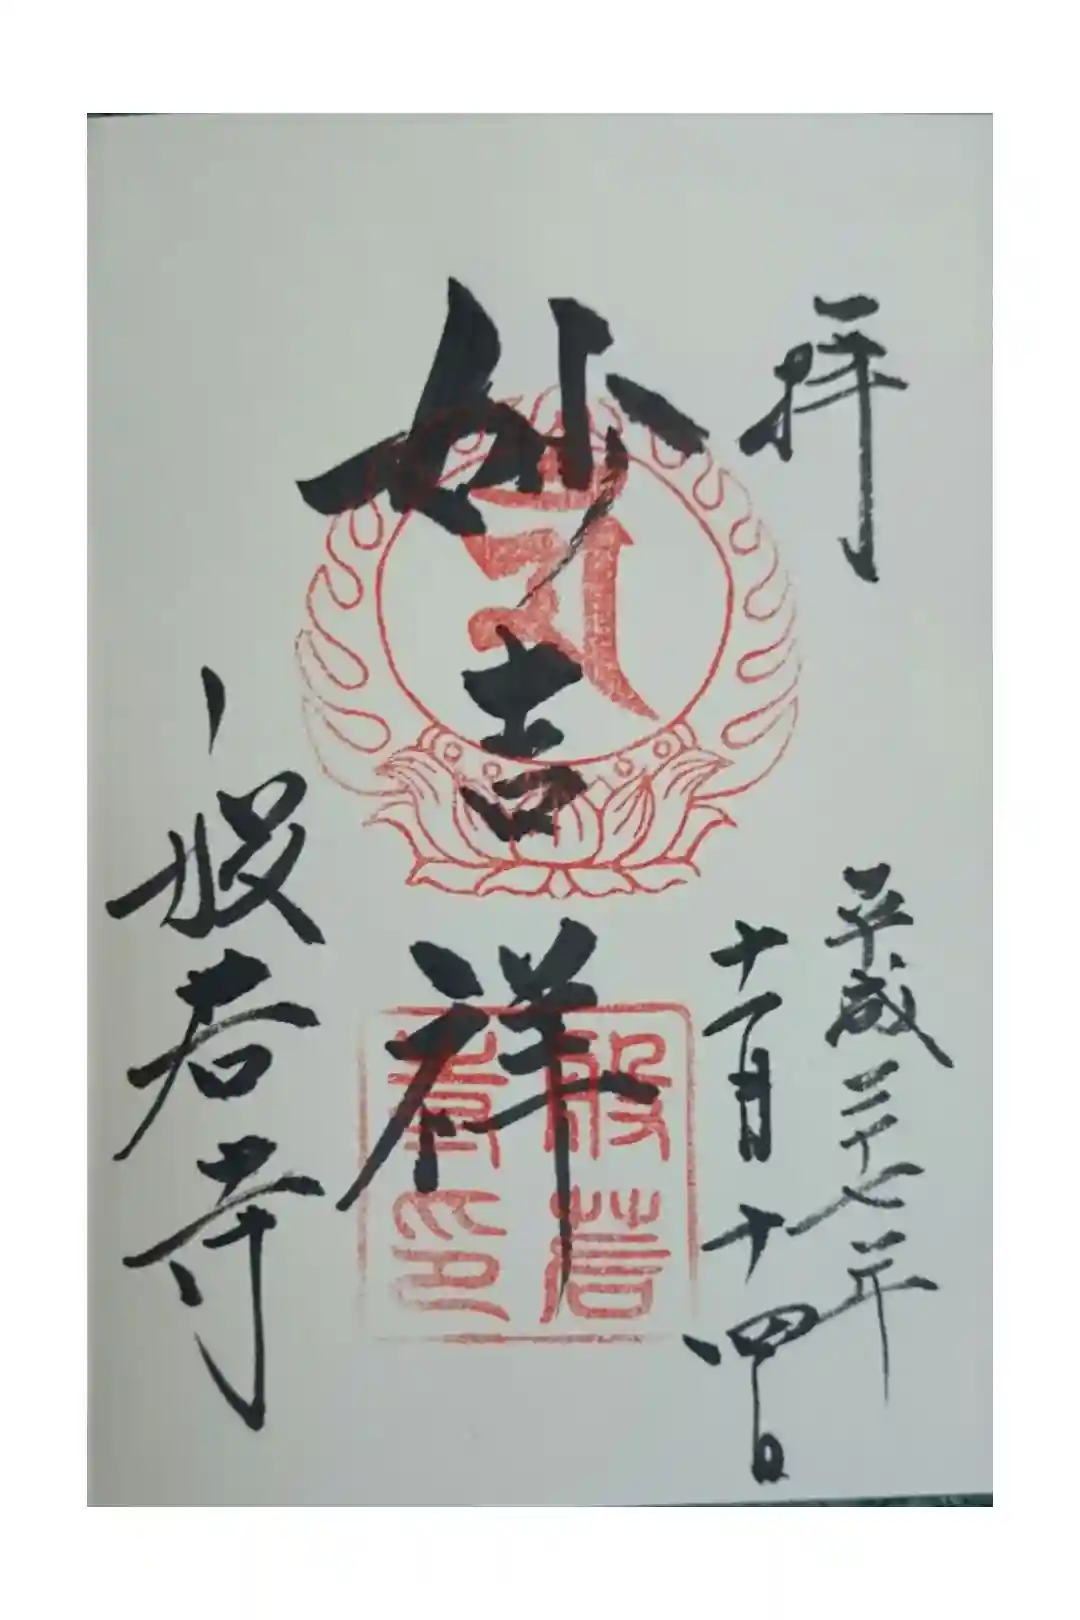 拝
平成二十七年
十一月十四日
妙吉祥
般若
印
般若寺